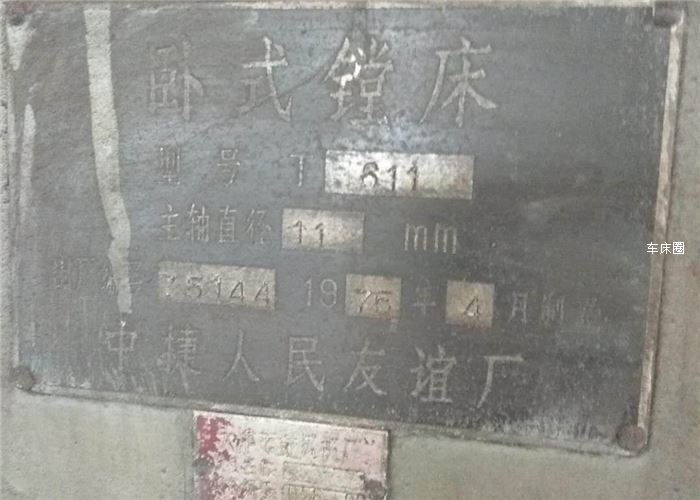 卧式镗床
型号 T 611
主轴直径 11 mm
出厂编号 75144 1975年4月制造
中捷人民友谊厂
车床圈